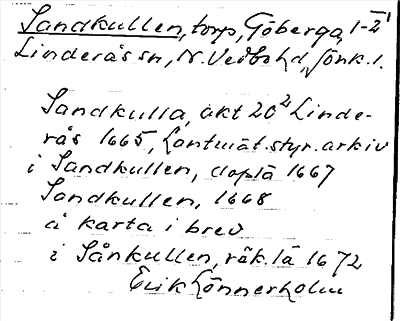 Sandkullen, torp, Göberga, 1-2'
Linderås sn, N. Vedbo hd, Jönk. l.
Sandkulla, akt 20² Linde-
rås 1665, Lantmät.styr. arkiv
i Sandkullen, dopla 1667
Sandkullen, 1668
å karta i brev
i Sånkullen, räk. lä 1672
Erik Lönnerholm